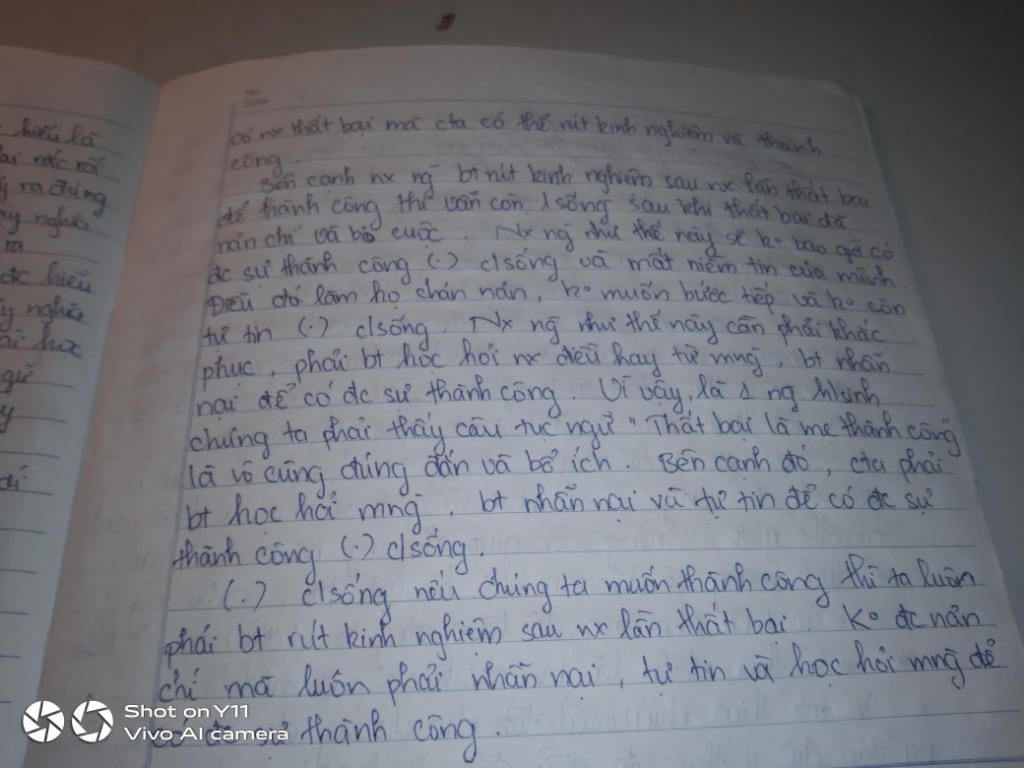 hiếu là
ra đứng
nghĩa
ra
đc hiểu
nghĩa
học
có nx thất bại mà cta có thể rút kinh nghiệm và thành
công.
Bên cạnh nx ng bt rút kinh nghiệm sau nx lần thất bại
để thành công thì vẫn còn 1 sống sau khi thất bại đã
nản chí và bỏ cuộc. Nx ng như thế này sẽ ko bao giờ có
đc sự thành công (.) c/sống và mất niềm tin của mình.
Điều đó làm họ chán nản, ko muốn bước tiếp và ko còn
tự tin (.) c/sống. Nx ng như thế này cần phải khắc
phục, phải bt học hỏi nx điều hay từ mng, bt nhẫn
nại để có đc sự thành công. Vì vậy, là 1 ng h/sinh
chúng ta phải thấy câu tục ngữ "Thất bại là mẹ thành công"
là vô cùng đúng đắn và bổ ích. Bên cạnh đó, cta phải
bt học hỏi mng, bt nhẫn nại và tự tin để có đc sự
thành công (.) c/sống.
(.) c/sống nếu chúng ta muốn thành công thì ta luôn
phải bt rút kinh nghiệm sau nx lần thất bại. Ko đc nản
chí mà luôn phải nhẫn nại, tự tin và học hỏi mng để
có đc sự thành công.
Shot on Y11
Vivo AI camera